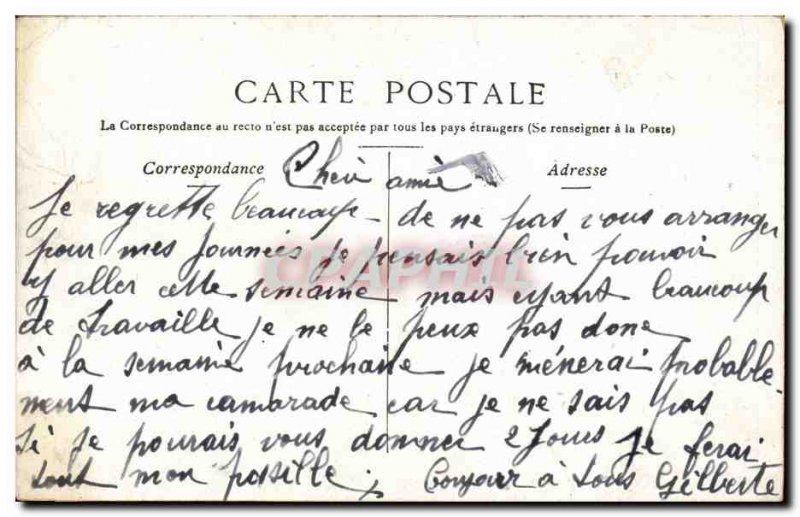 CARTE POSTALE
La Correspondance au recto n'est pas acceptée par tous les pays étrangers (Se renseigner à la Poste)
Correspondance
Adresse
Cheir amie
Je regrette beaucoup de ne pas vous arranger
pour mes journeés je pensais bien pouvoir
y aller cette semaine mais ayant beaucoup
de travaille je ne le peux pas donc
à la semaine prochaine je ménerai probable
ment ma camarade car je ne sais pas
si je pourais vous domner 2 jours je ferai
tout mon posille ; Bonjour à tous Gilberte
CPAPHIL